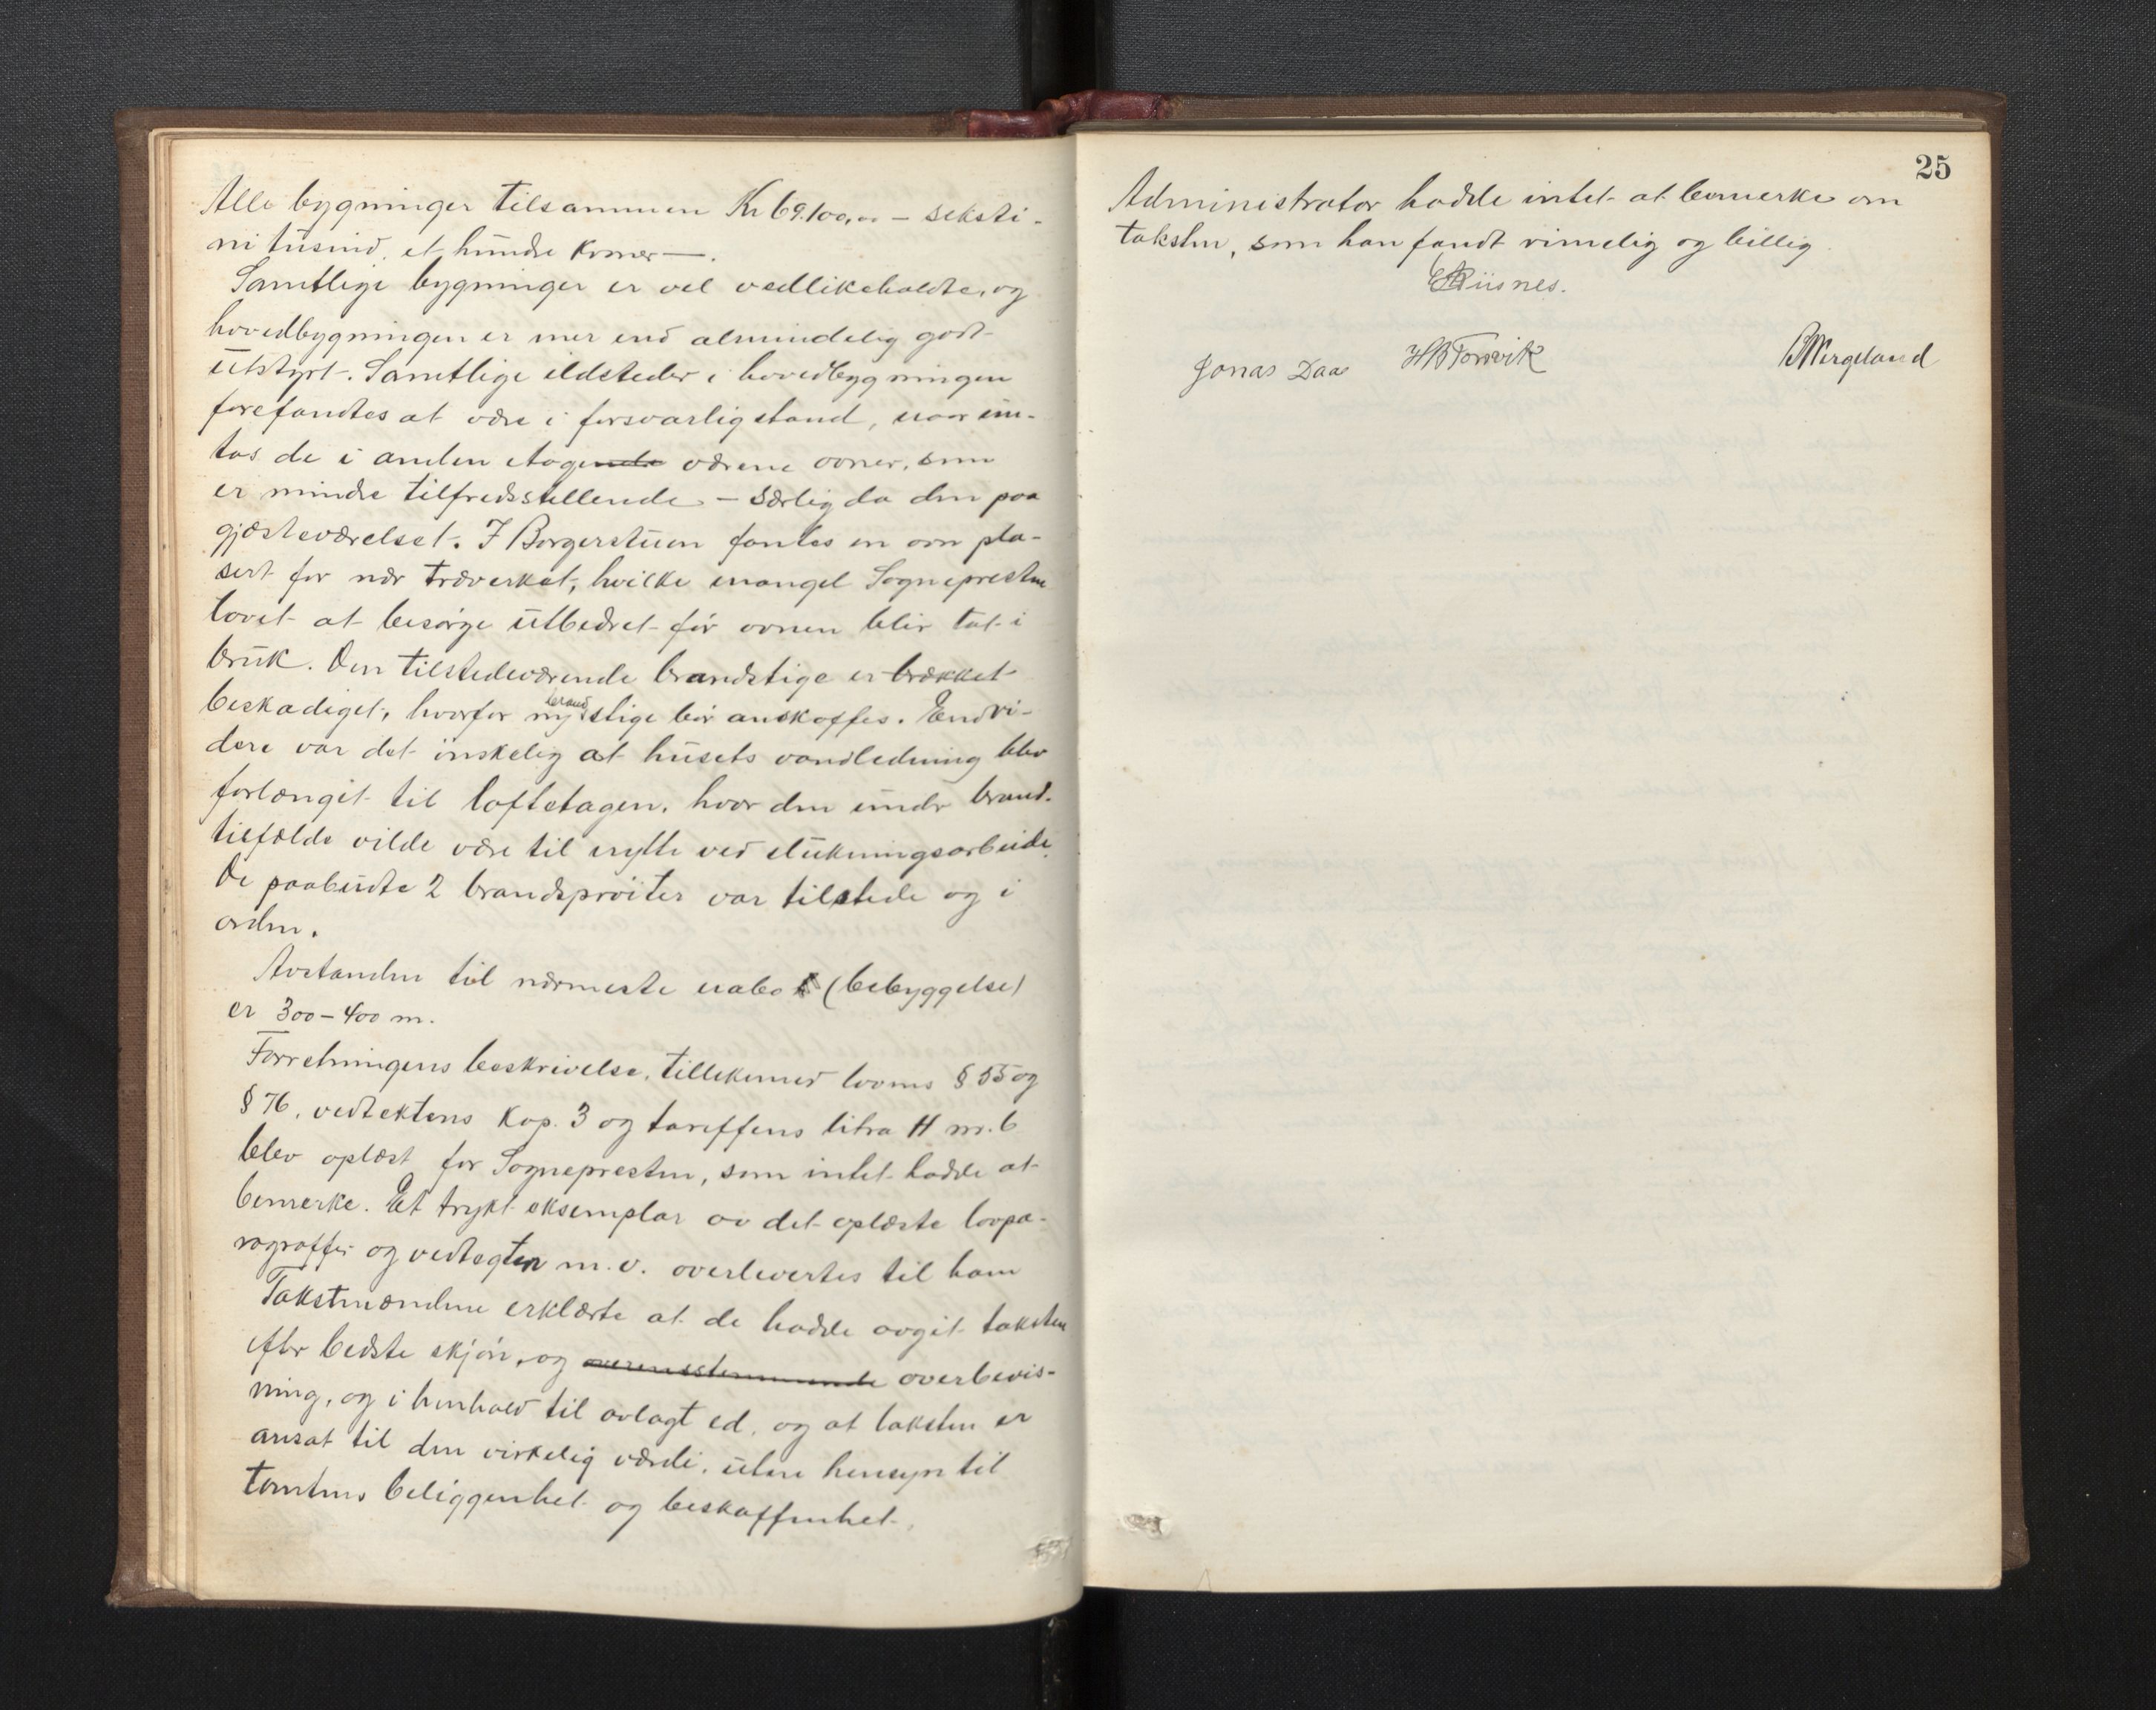 Alle bygninger tilsammen Kr 69.100,00 – seksti-
ni tusind, et hundre kroner —.
Samtlige bygninger er vel vedlikeholdte, og
hovedbygningen er mer end almindelig godt
utstyrt. Samtlige ildsteder i hovedbygningen
forefandtes at være i forsvarlig stand, naar un-
tas de i anden etage værene ovner, som
er mindre tilfredsstellende – særlig da den paa
gjæsteværelset. I Borgerstuen fantes en ovn pla-
sert for nær træverket, hvilke mangel Sognepresten
lovet at besørge utbedret før ovnen blir tat i
bruk. Den tilstedeværende brandstige er brækket
beskadiget, hvorfor ny brandstige bør anskaffes. Endvi-
dere var det ønskelig at husets vandledning blev
forlænget til loftetagen, hvor den under brand-
tilfælde vilde være til nytte ved slukningsarbeide.
De paabudte 2 brandsprøiter var tilstede og i
orden.
Avstanden til nærmeste nabo (bebyggelse)
er 300–400 m.
Forretningens beskrivelse, tillikemed lovens § 55 og
§ 76, vedtektens Kap. 3 og tariffens litra H nr. 6
blev oplæst for Sognepresten, som intet hadde at
bemerke. Et trykt eksemplar av det oplæste lovpa-
ragraffer og vedtegter m.v. overlevertes til ham
Takstmændene erklærte at de hadde avgit taksten
efter bedste skjøn, og overensstemmende overbevis-
ning, og i henhold til avlagt ed, og at taksten er
ansat til den virkelig værdi, uten hensyn til
tomtens beliggenhet og beskaffenhet.
25
Administrator hadde intet at bemerke om
taksten, som han fandt rimelig og billig
Riisnes.
Jonas Daa HB Torvik B Wergeland